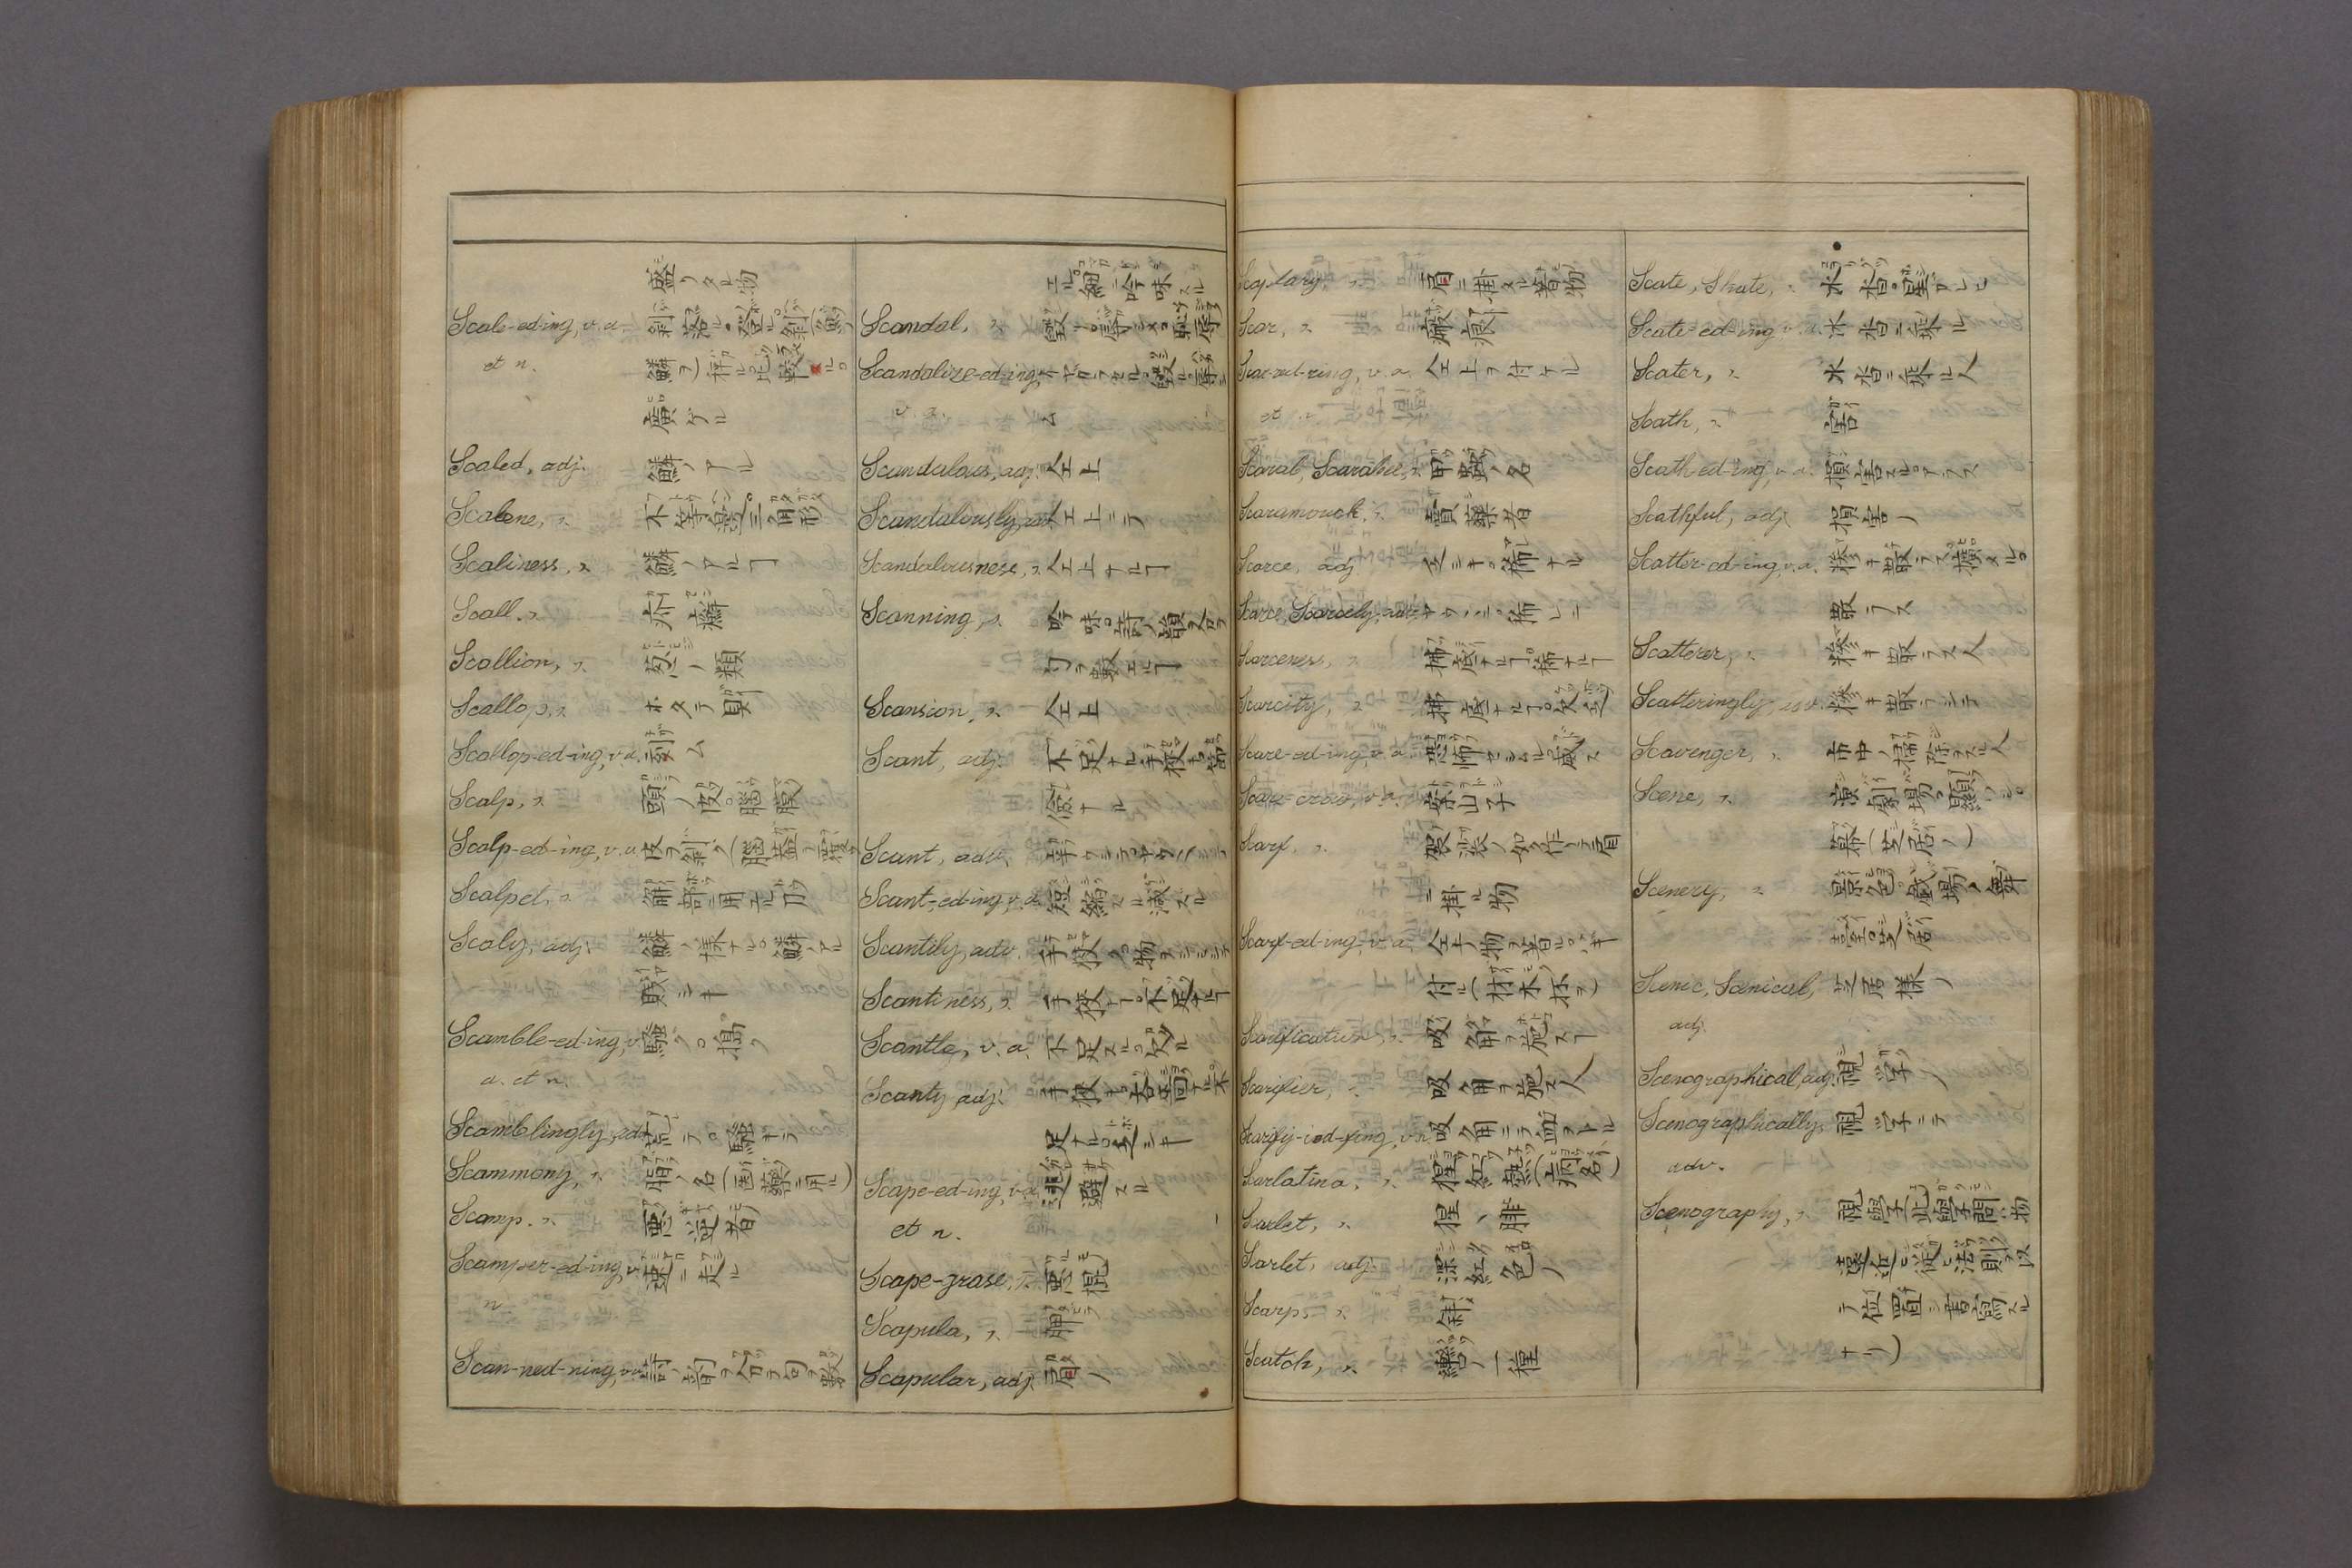 盛リタル物
Scale-ed-ing, v.a.
et n.
廣ゲル
Scaled, adj. 鱗ノアル
Scalene, n. 不等邊三角形
Scaliness, n. 鱗ノアルヿ
Scall, n.
Scallion, n. 葱ノ類
Scallop, n. ホタテ貝
Scallop-ed-ing, v.a. 刻ム
Scalp, n. 頭ノ皮。腦膜
Scalp-ed-ing, v.a. 皮ヲ剝ク
Scalpel, n. 解部ニ用エル刀
Scaly, adj. 鱗ノ様ナル。鱗ノアル
賤シキ
Scamble-ed-ing, v.
a. et n.
Scamblingly, adv.
Scammony, n. 脂ノ名(醫藥ニ用ル)
Scamp, n. 悪キ者
Scamper-ed-ing, v.
n.
Scan-ned-ning, v.a.
エル。細ニ吟味スル
Scandal, n.
Scandalize-ed-ing,
v.a. ム
Scandalous, adj. 仝上
Scandalously, adv. 仝上ニテ
Scandalousness, n. 仝上ナルヿ
Scanning, n.
句ヲ數エルヿ
Scansion, n. 仝上
Scant, adj.
儉ナル
Scant, adv.
Scant-ed-ing, v.a. 短縮スル。減スル
Scantily, adv.
Scantiness, n. 手狹ナヿ。不足ナルヿ
Scantle, v.a. 不足スル。欠ル
Scanty, adj.
足ナル。乏シキ
Scape-ed-ing, v.a. 逃避スル
et n.
Scape-grase, n. 悪棍
Scapula, n. 胛
Scapular, adj. 肩ノ
Scaplary, n. 肩ニ掛タル着物
Scar, n. 瘢痕
Scar-red-ring, v.a. 仝上ヲ付ケル
et n.
Scarab, Scarabee, n. 甲蟲ノ名
Scaramouch, n. 賣藥者
Scarce, adj. 乏シキ。稀ナル
Scarce, Scarcely, adv. ヤウヽニ。稀レニ
Scarceness, n. 拂底ナルヿ。稀ナルヿ
Scarcity, n. 拂底ナルヿ。欠乏
Scare-ed-ing, v.a. 恐怖セシムル。威ス
Scare-crow, n. 案山子
Scarf, n. 袈裟ノ如ク作リテ肩
ニ掛ル物
Scarf-ed-ing, v.a. 仝上ノ物ヲ着ル。
付ル(材木抔ヲ)
Scarification, n. 吸角ヲ施スヿ
Scarifier, n. 吸角ヲ施ス人
Scarify-ied-fying, v.a. 吸角ニテ血ヲトル
Scarlatina, n. 猩紅熱(病名)
Scarlet, n. 猩ヽ緋
Scarlet, adj. 深紅色ノ
Scarp, n. 斜
Scatch, n. 轡ノ一種
Scate, Skate, n.
Scate-ed-ing, v.a. 氷沓ニ乘ル
Scater, n. 氷沓ニ乘ル人
Scath, n. 害
Scath-ed-ing, v.a. 損害スル。アラス
Scathful, adj. 損害ノ
Scatter-ed-ing, v.a.
散ラス
Scatterer, n. 撒キ散ラス人
Scatteringly, adv. 撒キ散ラシテ
Scavenger, n. 市中ノ掃除ヲスル人
Scene, n. 演劇場。顯ハシ。
幕(芝居ノ)
Scenery, n. 景色。戯場ノ舞
臺。芝居
Scenic, Scenical, 芝居様ノ
adj.
Scenographical, adj. 視学ノ
Scenographically, 視学ニテ
adv.
Scenography, n. 視學(此學問ハ物
遠近ニ従ヒ法則ヲ以
テ位置シ書寫スル
ナリ)